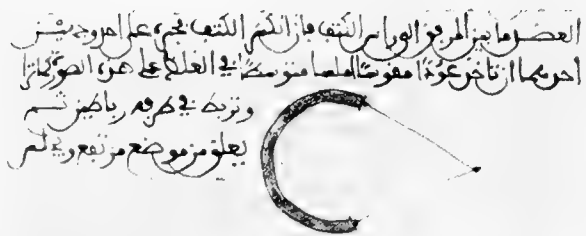 العضد ما بين المرفق الى راس الكتف فان انكسر الكتف فجبره على احد وجهين
احدهما ان تاخذ عودًا مقوسًا املسا متوسطًا في الغلظ على هذه الصورة كما ترا
وتربط في طرفيه رباطين ثم
يعلق من موضع مرتفع